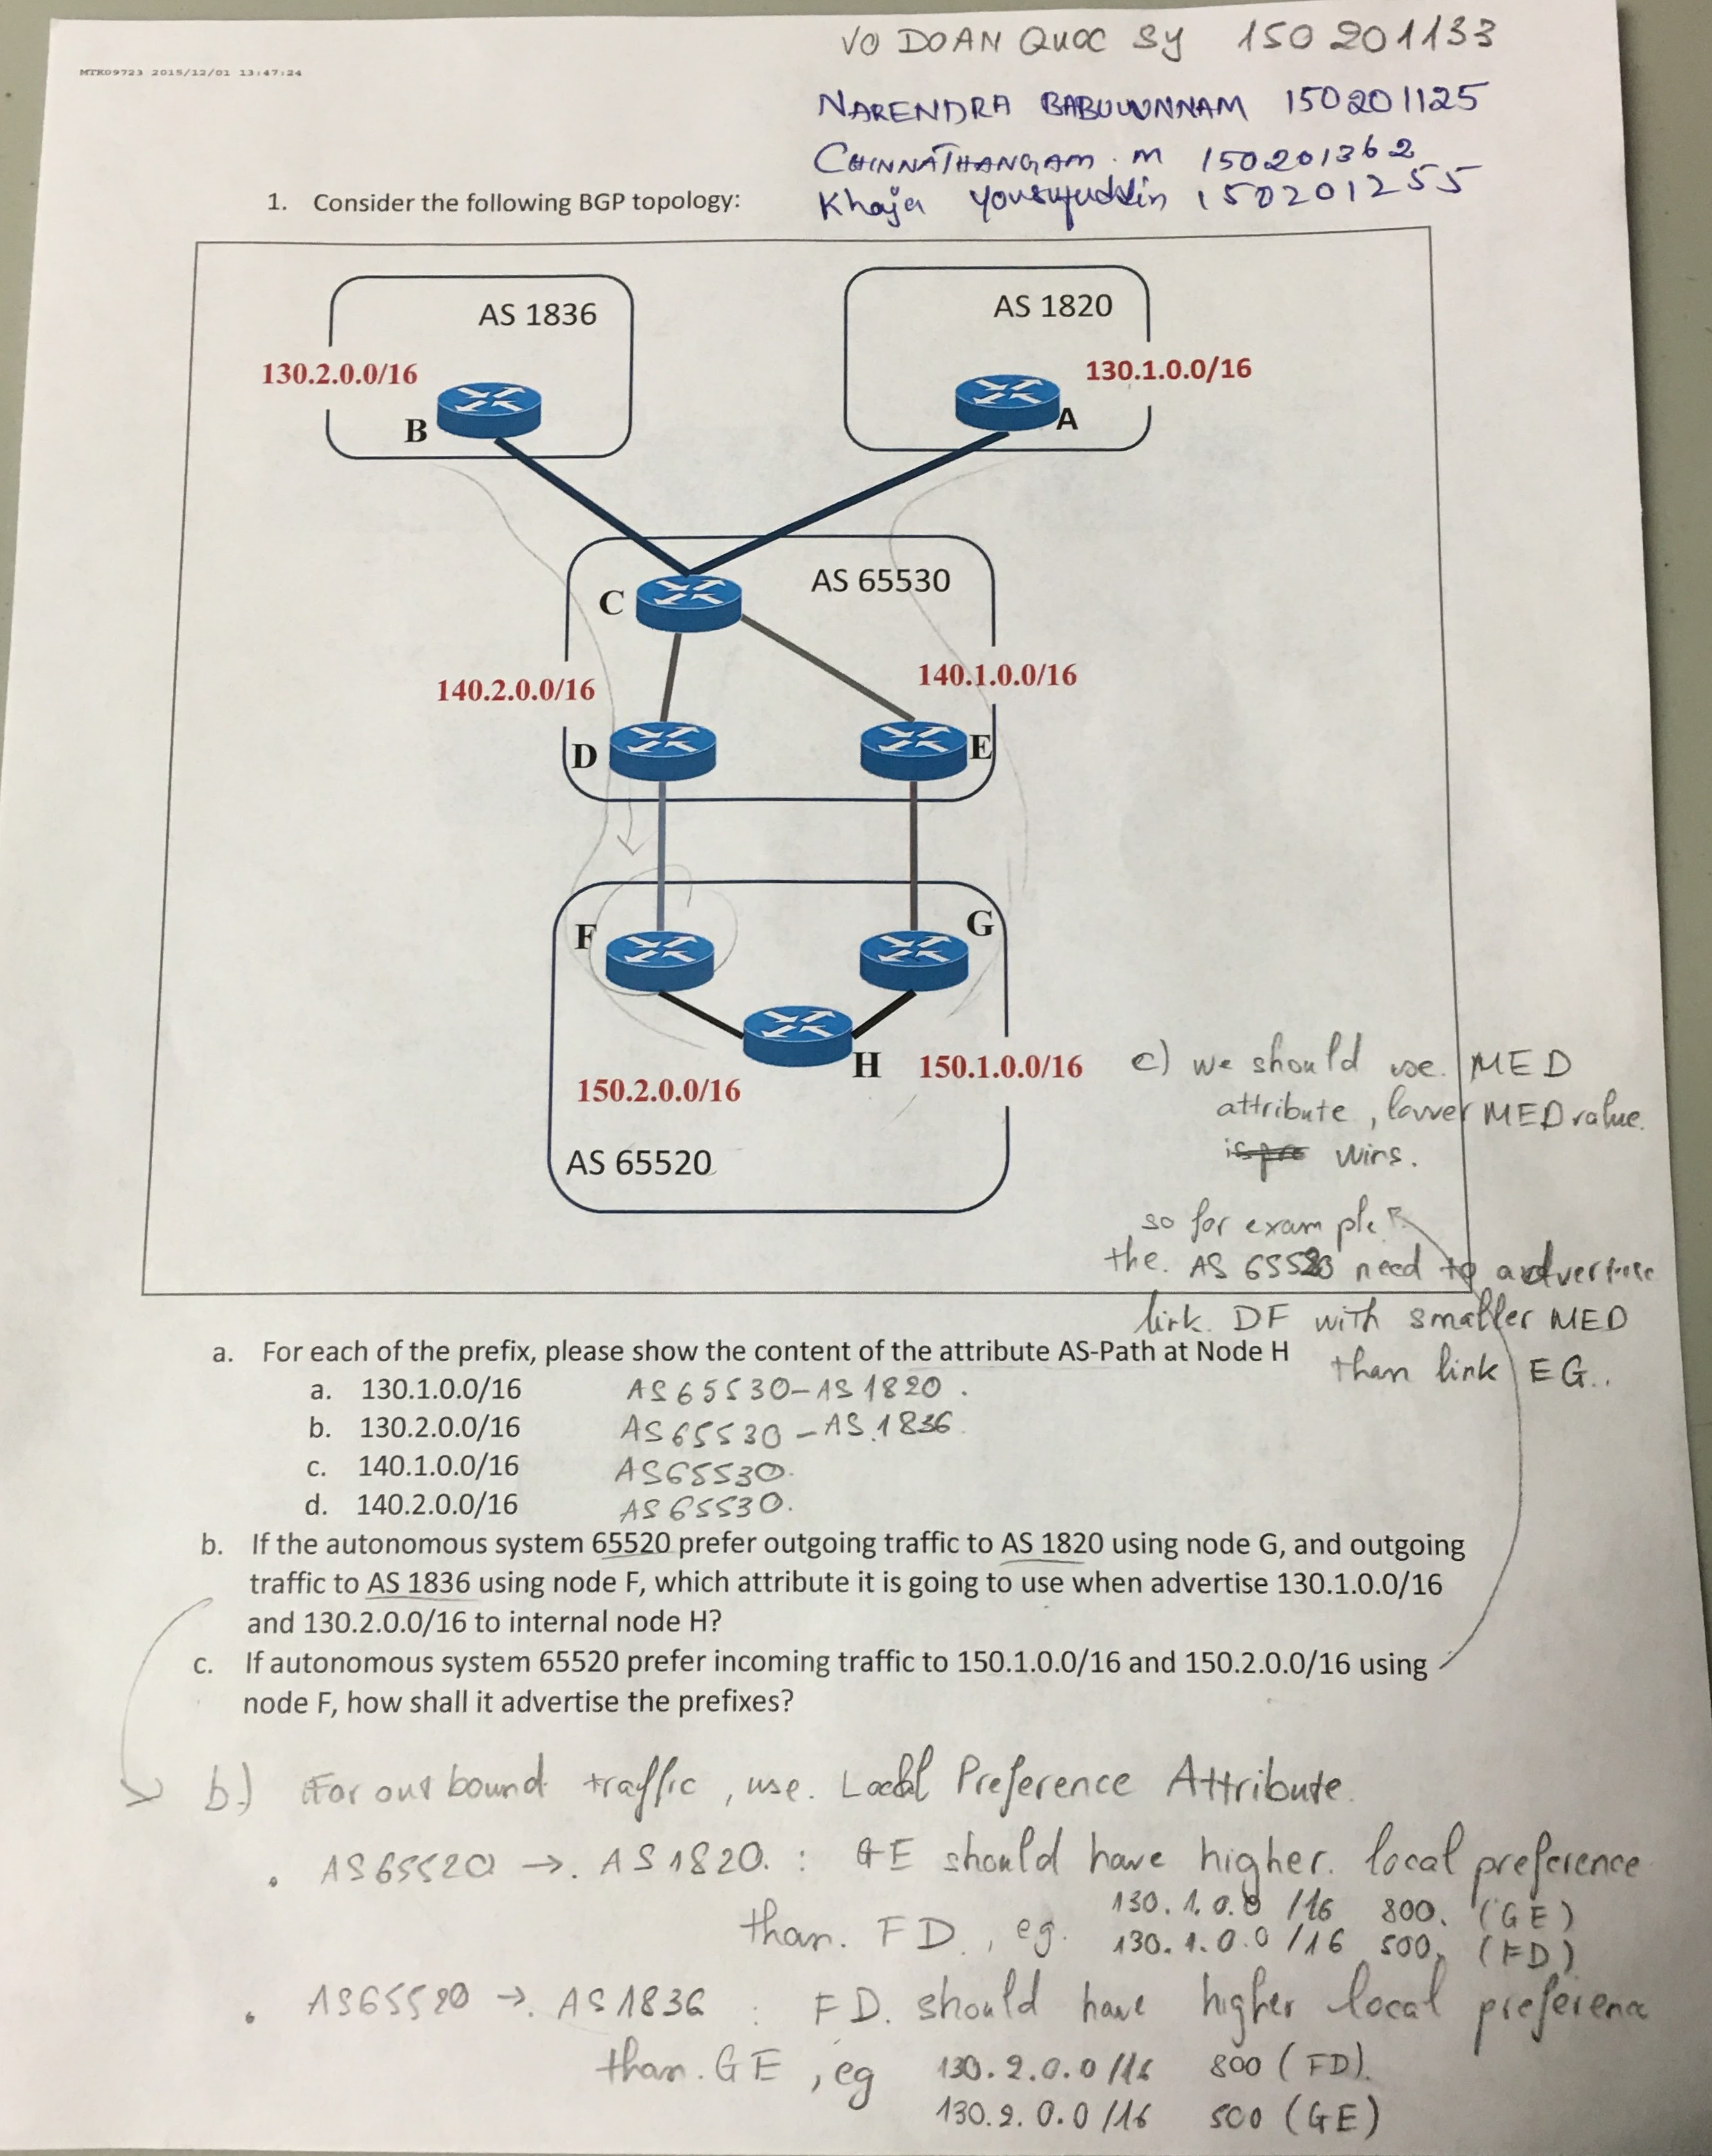 VO DOAN QUOC SY 150201133
MTK09723 2015/12/01 13:47:24
NARENDRA BABUUNNAM 150201125
CHINNATHANGAM . M 150201362
1. Consider the following BGP topology:
Khaja Yousufuddin 150201255
AS 1836
AS 1820
130.2.0.0/16
130.1.0.0/16
B
A
C
AS 65530
140.2.0.0/16
140.1.0.0/16
D
E
F
G
H
150.2.0.0/16
150.1.0.0/16
AS 65520
c) we should use MED
attribute, lower MED value.
wins.
so for example
the. AS 65520 need to advertise
link. DF with smaller MED
than link EG..
a. For each of the prefix, please show the content of the attribute AS-Path at Node H
a. 130.1.0.0/16 AS 65530-AS 1820.
b. 130.2.0.0/16 AS 65530 - AS.1836.
c. 140.1.0.0/16 AS65530.
d. 140.2.0.0/16 AS 65530.
b. If the autonomous system 65520 prefer outgoing traffic to AS 1820 using node G, and outgoing
traffic to AS 1836 using node F, which attribute it is going to use when advertise 130.1.0.0/16
and 130.2.0.0/16 to internal node H?
c. If autonomous system 65520 prefer incoming traffic to 150.1.0.0/16 and 150.2.0.0/16 using
node F, how shall it advertise the prefixes?
b.) For out bound traffic, use. Local Preference Attribute.
. AS65520 →. AS 1820. : GE should have higher. local preference
than. FD., eg. 130.1.0.0 /16 800. (GE)
130.1.0.0 /16 500. (FD)
. AS65520 →. AS 1836 : FD. should have higher local preference
than. GE, eg 130.2.0.0 /16 800 (FD).
130.2.0.0 /16 500 (GE)